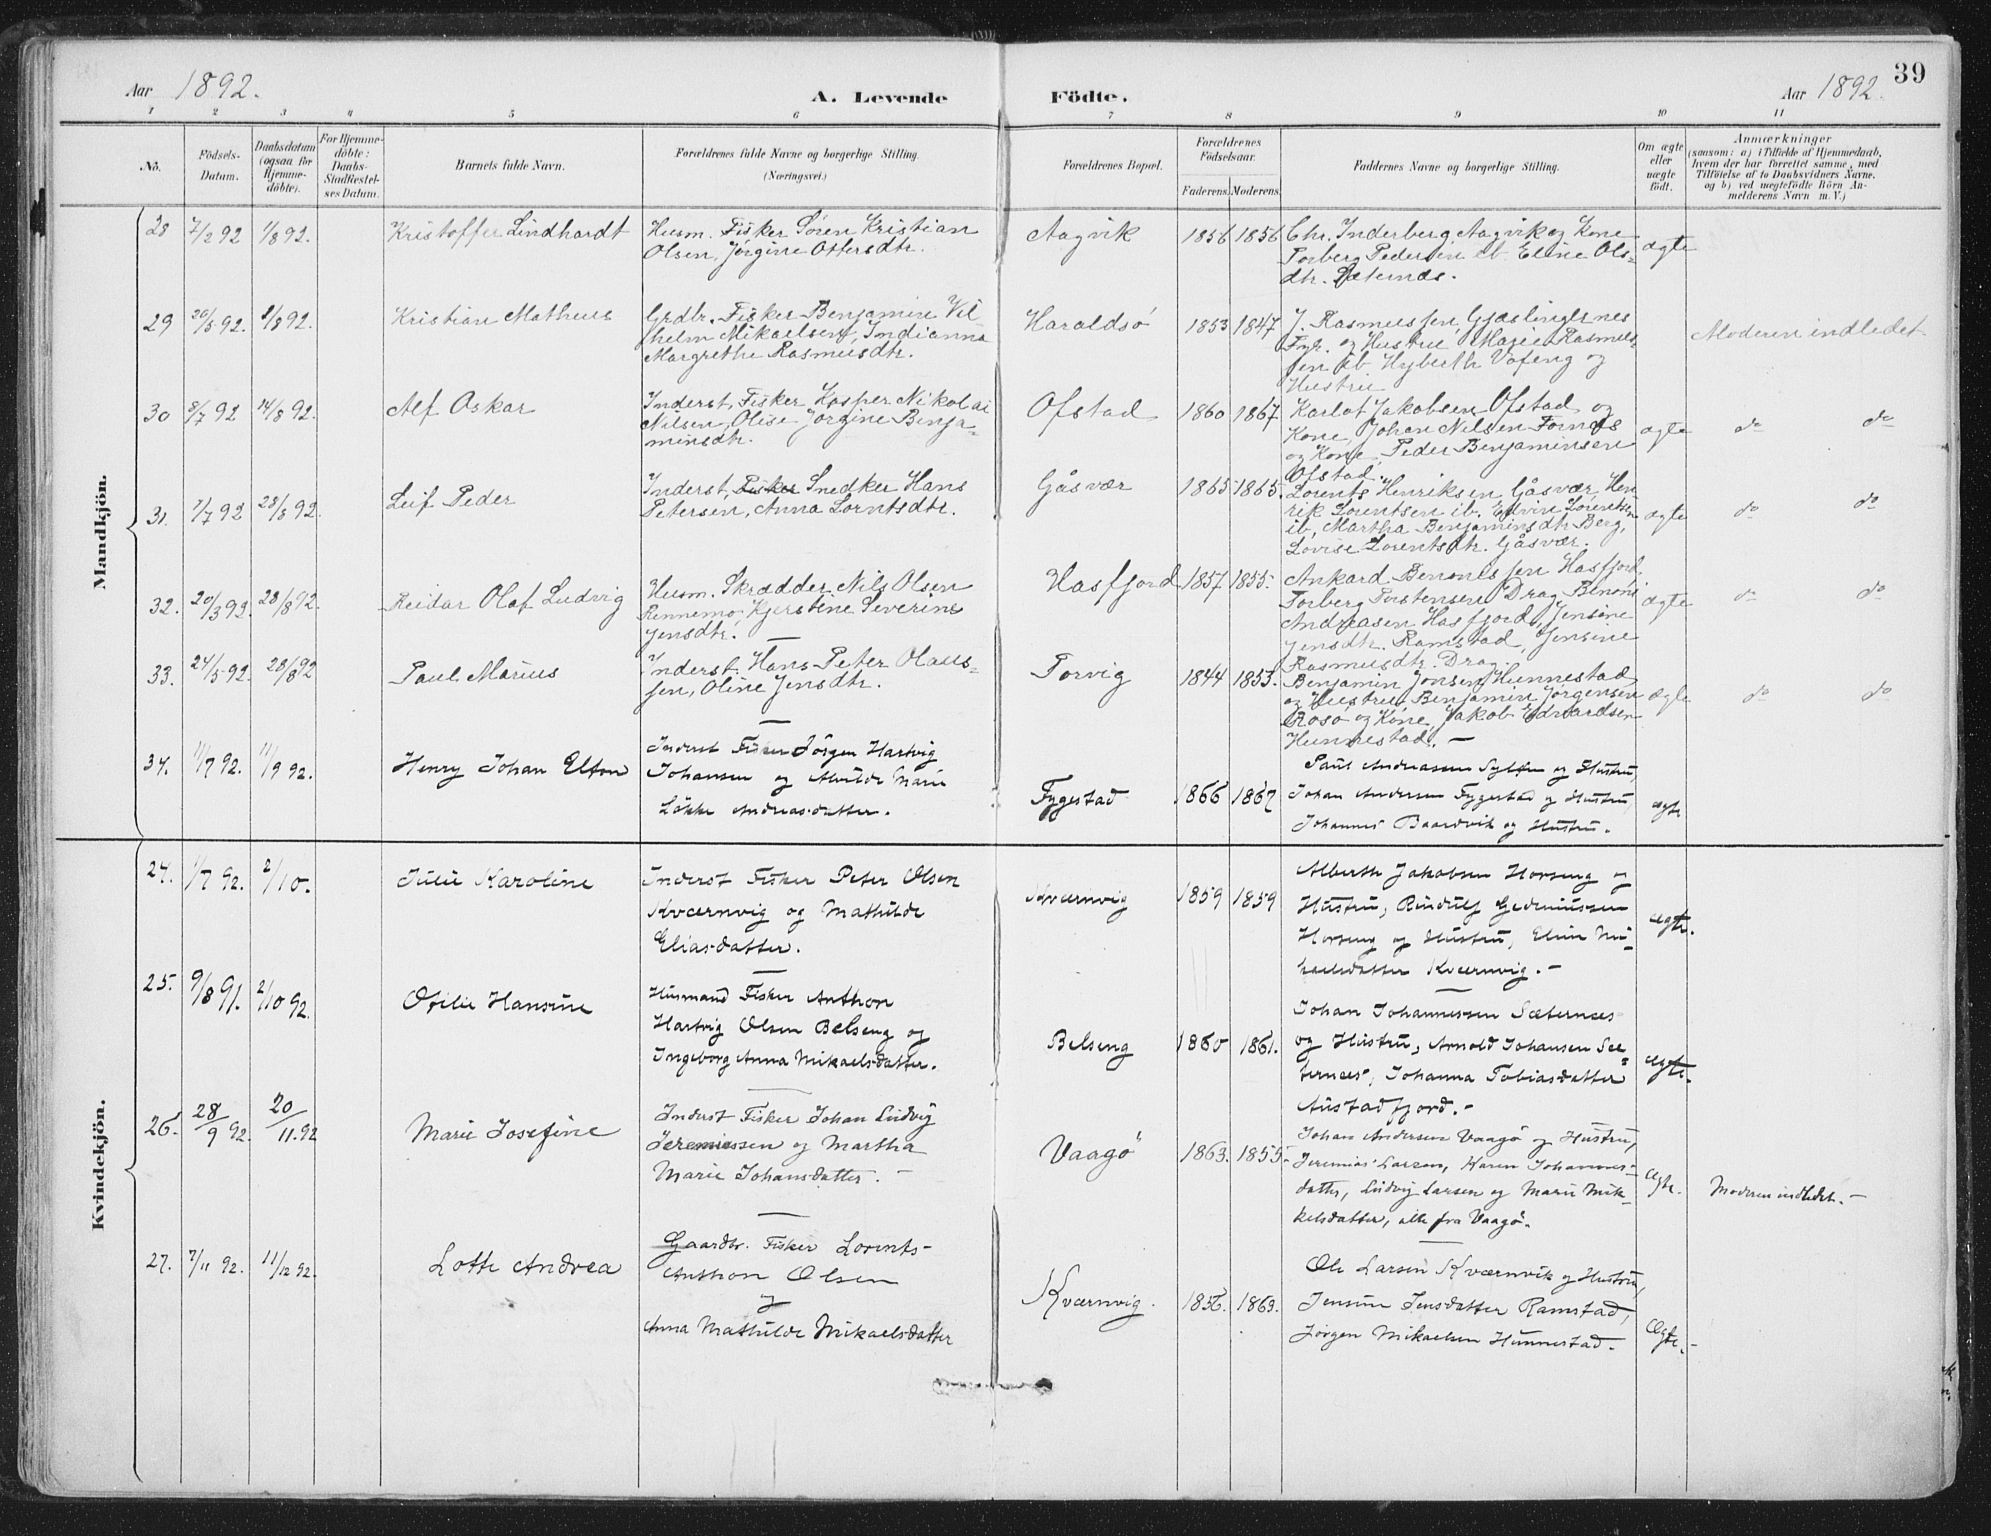 39
Aar 1892.
A. Levende
Födte.
Aar 1892.
1 2 3 4 5 6 7 8 9 10 11
No.
Födsels-
Datum.
Daabsdatum
(ogsaa for
Hjemme-
döbte).
For Hjemme-
döbte:
Daabs-
Stadfæstel-
ses Datum.
Barnets fulde Navn.
Forældrenes fulde Navne og borgerlige Stilling.
(Næringsvei.)
Forældrenes Bopæl.
Forældrenes
Födselsaar.
Faderens. Moderens.
Faddernes Navne og borgerlige Stilling.
Om ægte
eller
uægte
födt.
Anmærkninger
(saasom: a) i Tilfælde af Hjemmedaab,
hvem der har forrettet samme, med
Tilföielse af to Daabsvidners Navne,
og b) ved uægtefödte Börn An-
melderens Navn m. V.)
Mandkjön.
28 7/2 92 1/8 92. Kristoffer Lindhardt
Husm. Fisker Sören Kristian
Olsen, Jörgine Ottersdtr.
Aagvik 1856 1856
Chr. Inderberg Aagvik og Kone
Torberg Pedersen ib. Eline Ols-
dtr. Sæternæs.
ægte
29 20/5 92. 1/8 92. Kristian Matheus
Grdbr. Fisker Benjamin Vil
helm Mikaelsen, Indianna
Margrethe Rasmusdtr.
Haraldsö 1853 1847
J. Rasmussen Gjæslingernes
Fyr. og Hustru, Marie Rasmus-
sen ib. Hyberth Vofeng og
Hustru
Moderen indledet
30 8/7 92 14/8 92. Alf Oskar
Inderst, Fisker Kasper Nikolai
Nilsen, Olise Jörgine Benja-
minsdtr.
Ofstad 1860 1867
Karlot Jakobsen Ofstad og
Kone, Johan Nilsen Fornæs
og Kone, Peder Benjaminsen
Ofstad.
ægte do do
31. 7/7 92 28/8 92. Leif Peder
Inderst, Fisker Snedker Hans
Petersen, Anna Lorntsdtr.
Gåsvær 1865 1865.
Lorents Henriksen Gåsvær, Hen
rik Lorentsen ib. Edvin Lorentsen
ib, Martha Benjaminsdtr. Berg,
Lovise Lorentsdtr. Gåsvær.
ægte do do
32. 20/3 92. 28/8 92. Reidar Olaf Ludvig
Husm. Skrædder Nils Olsen
Rennemo, Kjerstine Severine
Jensdtr.
Hasfjord 1857 1855.
Ankard Benonissen Hasfjord
Torberg Torstensen Drag, Benoni
Andreasen Hasfjord, Jensine
Jensdtr. Ramstad, Jensine
Rasmusdtr. Drag.
ægte do do
33. 24/5 92. 28/8 92 Paul Marius
Inderst. Hans Peter Olaus-
sen, Oline Jensdtr.
Torvig 1844 1853.
Benjamin Jonsen Hunnestad
og Hustru, Benjamin Jörgensen
Rosö og Kone, Jakob Edvardsen
Hunnestad. —
ægte do do
34. 11/7 92. 11/9 92. Henry Johan Elton
Inderst Fisker Jörgen Hartvig
Johansen og Alvilde Marie
Lökke Andreasdatter.
Fygestad 1866 1867
Paul Andreassen Sylten og Hustru,
Johan Andersen Fygestad og Hustru,
Johannes Baardvik og Hustru.
ægte
Kvindekjön.
24. 11/7 92. 2/10. Julie Karoline
Inderst Fisker Peter Olsen
Kværnvig og Mathilde
Eliasdatter.
Kværnvig 1859 1859
Alberth Jakobsen Horseng og
Hustru, Rindulf Gederiussen
Horseng og Hustru, Eline Mi-
kaelsdatter Kværnvig. -
ægte.
25. 9/8 91. 2/10 92. Otilie Hansine
Husmand Fisker Anthon
Hartvig Olsen Belseng og
Ingeborg Anna Mikaelsdatter.
Belseng 1860 1861.
Johan Johannessen Sæternæs
og Hustru, Arnold Johansen Sæ-
ternæs, Johanna Tobiasdatter
Austadfjord. -
ægte.
26. 28/9 92. 20/11.92 Marie Josefine
Inderst Fisker Johan Ludvig
Jeremiessen og Martha
Marie Johansdatter. -
Vaagö 1863. 1855-
Johan Andersen Vaagö og Hustru,
Jeremias Larsen, Karen Johannes-
datter, Ludvig Larsen og Marie Mik-
kelsdatter, alle fra Vaagö.
ægte. Moderen indledet. -
27. 7/11 92. 11/12 92. Lotte Andrea
Gaardbr. Fisker Lorents-
Anthon Olsen
og
Anna Mathilde Mikaelsdatter
Kværnvig. 1856. 1863.
Ole Larsen Kværnvik og Hustru,
Jensine Jensdatter Ramstad,
Jörgen Mikaelsen Hunnestad.
Ægte. -